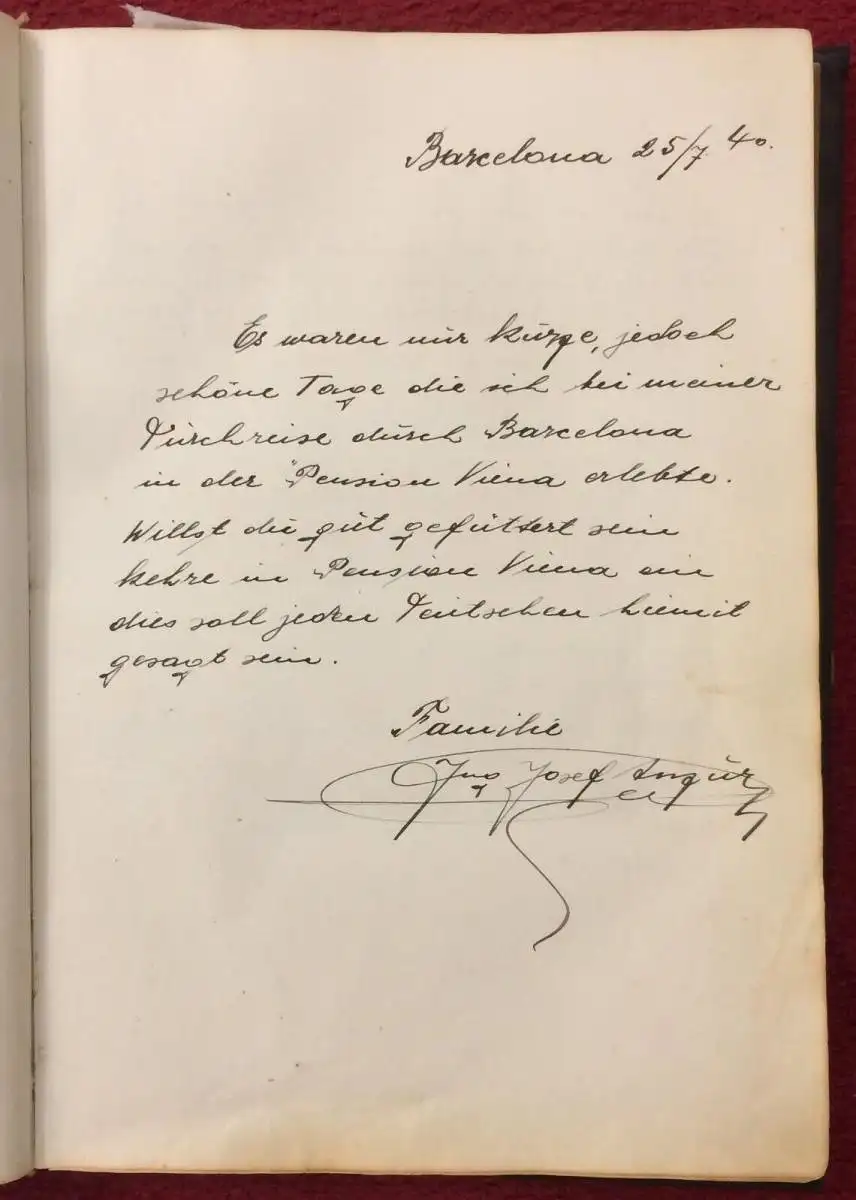 Barcelona 25/7. 40.
Es waren nur kurze, jedoch
schöne Tage die ich bei meiner
Durchreise durch Barcelona
in der "Pension Viena erlebte.
Willst du gut gefüttert sein
kehre in Pension Viena ein
dies soll jeden Deutschen hiemit
gesagt sein.
Familie
Ing Josef